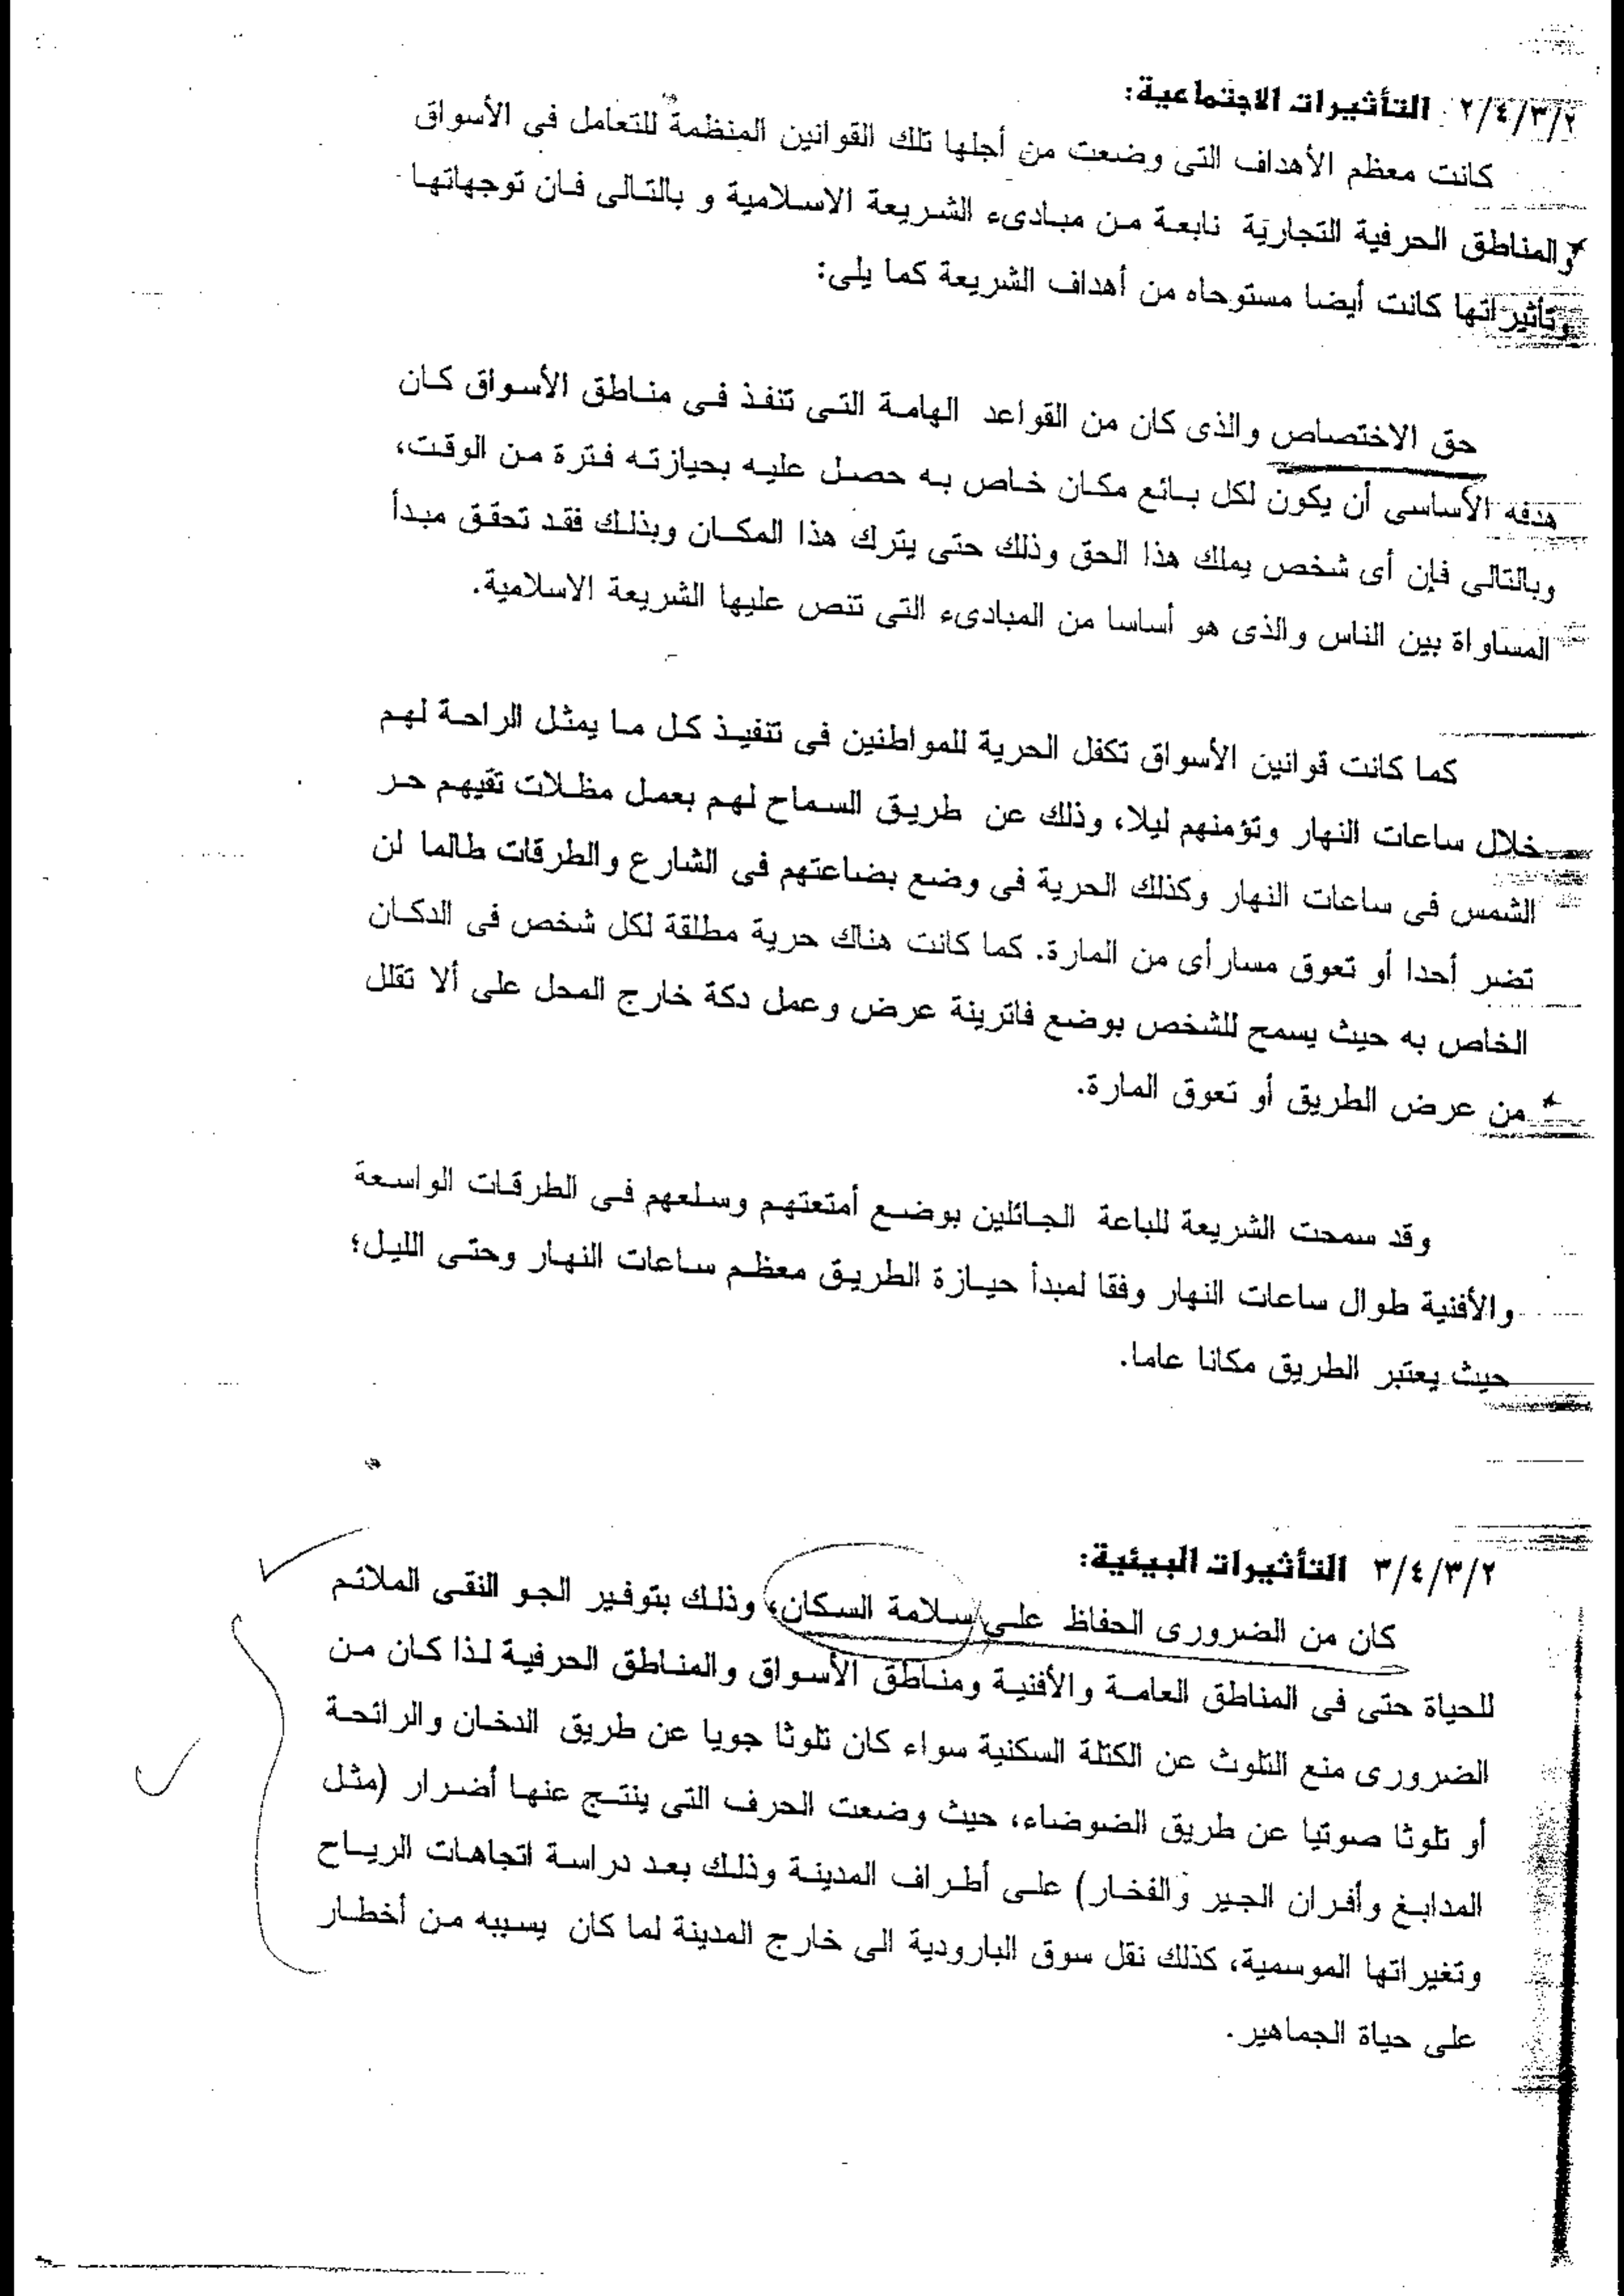 ٢/٤/٣/٢ التأثيرات الاجتماعية:
كانت معظم الأهداف التى وضعت من أجلها تلك القوانين المنظمة للتعامل فى الأسواق
والمناطق الحرفية التجارية نابعة من مبادىء الشريعة الاسلامية و بالتالى فان توجهاتها
وتأثيراتها كانت أيضا مستوحاه من أهداف الشريعة كما يلى:
حق الاختصاص والذى كان من القواعد الهامة التى تنفذ فى مناطق الأسواق كان
هدفه الأساسى أن يكون لكل بائع مكان خاص به حصل عليه بحيازته فترة من الوقت،
وبالتالى فإن أى شخص يملك هذا الحق وذلك حتى يترك هذا المكان وبذلك فقد تحقق مبدأ
المساواة بين الناس والذى هو أساسا من المبادىء التى تنص عليها الشريعة الاسلامية.
كما كانت قوانين الأسواق تكفل الحرية للمواطنين فى تنفيذ كل ما يمثل الراحة لهم
خلال ساعات النهار وتؤمنهم ليلا، وذلك عن طريق السماح لهم بعمل مظلات تقيهم حر
الشمس فى ساعات النهار وكذلك الحرية فى وضع بضاعتهم فى الشارع والطرقات طالما لن
تضر أحدا أو تعوق مسارأى من المارة. كما كانت هناك حرية مطلقة لكل شخص فى الدكان
الخاص به حيث يسمح للشخص بوضع فاترينة عرض وعمل دكة خارج المحل على ألا تقلل
من عرض الطريق أو تعوق المارة.
وقد سمحت الشريعة للباعة الجائلين بوضع أمتعتهم وسلعهم فى الطرقات الواسعة
والأفنية طوال ساعات النهار وفقا لمبدأ حيازة الطريق معظم ساعات النهار وحتى الليل؛
حيث يعتبر الطريق مكانا عاما.
٣/٤/٣/٢ التأثيرات البيئية:
كان من الضرورى الحفاظ على سلامة السكان، وذلك بتوفير الجو النقى الملائم
للحياة حتى فى المناطق العامة والأفنية ومناطق الأسواق والمناطق الحرفية لذا كان من
الضرورى منع التلوث عن الكتلة السكنية سواء كان تلوثا جويا عن طريق الدخان والرائحة
أو تلوثا صوتيا عن طريق الضوضاء، حيث وضعت الحرف التى ينتج عنها أضرار (مثل
المدابغ وأفران الجير والفخار) على أطراف المدينة وذلك بعد دراسة اتجاهات الرياح
وتغيراتها الموسمية، كذلك نقل سوق البارودية الى خارج المدينة لما كان يسببه من أخطار
على حياة الجماهير.